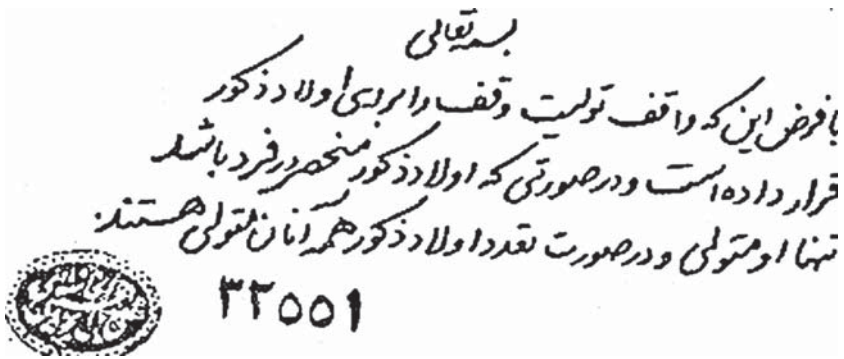 بسمه تعالی
با فرض این که واقف تولیت وقف را برای اولاد ذکور
قرار داده است و در صورتی که اولاد ذکور منحصر در فرد باشد
تنها او متولی و در صورت تعدد اولاد ذکور همه آنان متولی هستند.
۳۲۵۵۱